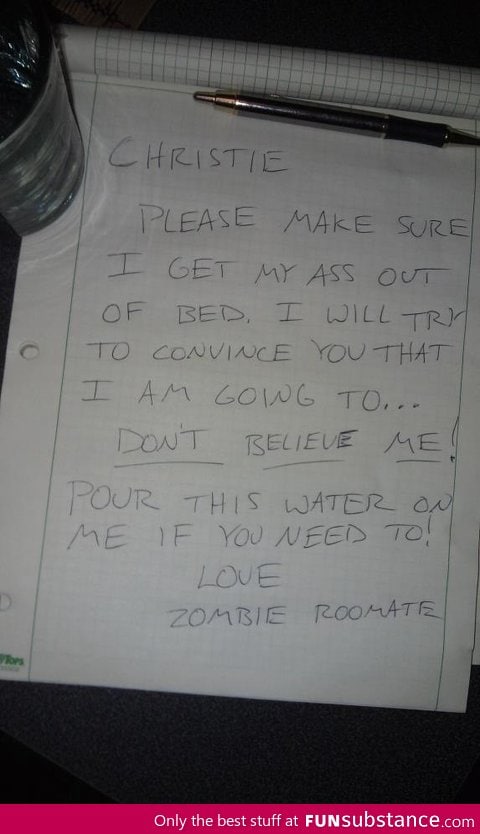 CHRISTIE
PLEASE MAKE SURE
I GET MY ASS OUT
OF BED. I WILL TRY
TO CONVINCE YOU THAT
I AM GOING TO...
DON'T BELIEVE ME!
POUR THIS WATER ON
ME IF YOU NEED TO!
LOVE
ZOMBIE ROOMATE
Tops
Only the best stuff at FUNsubstance.com